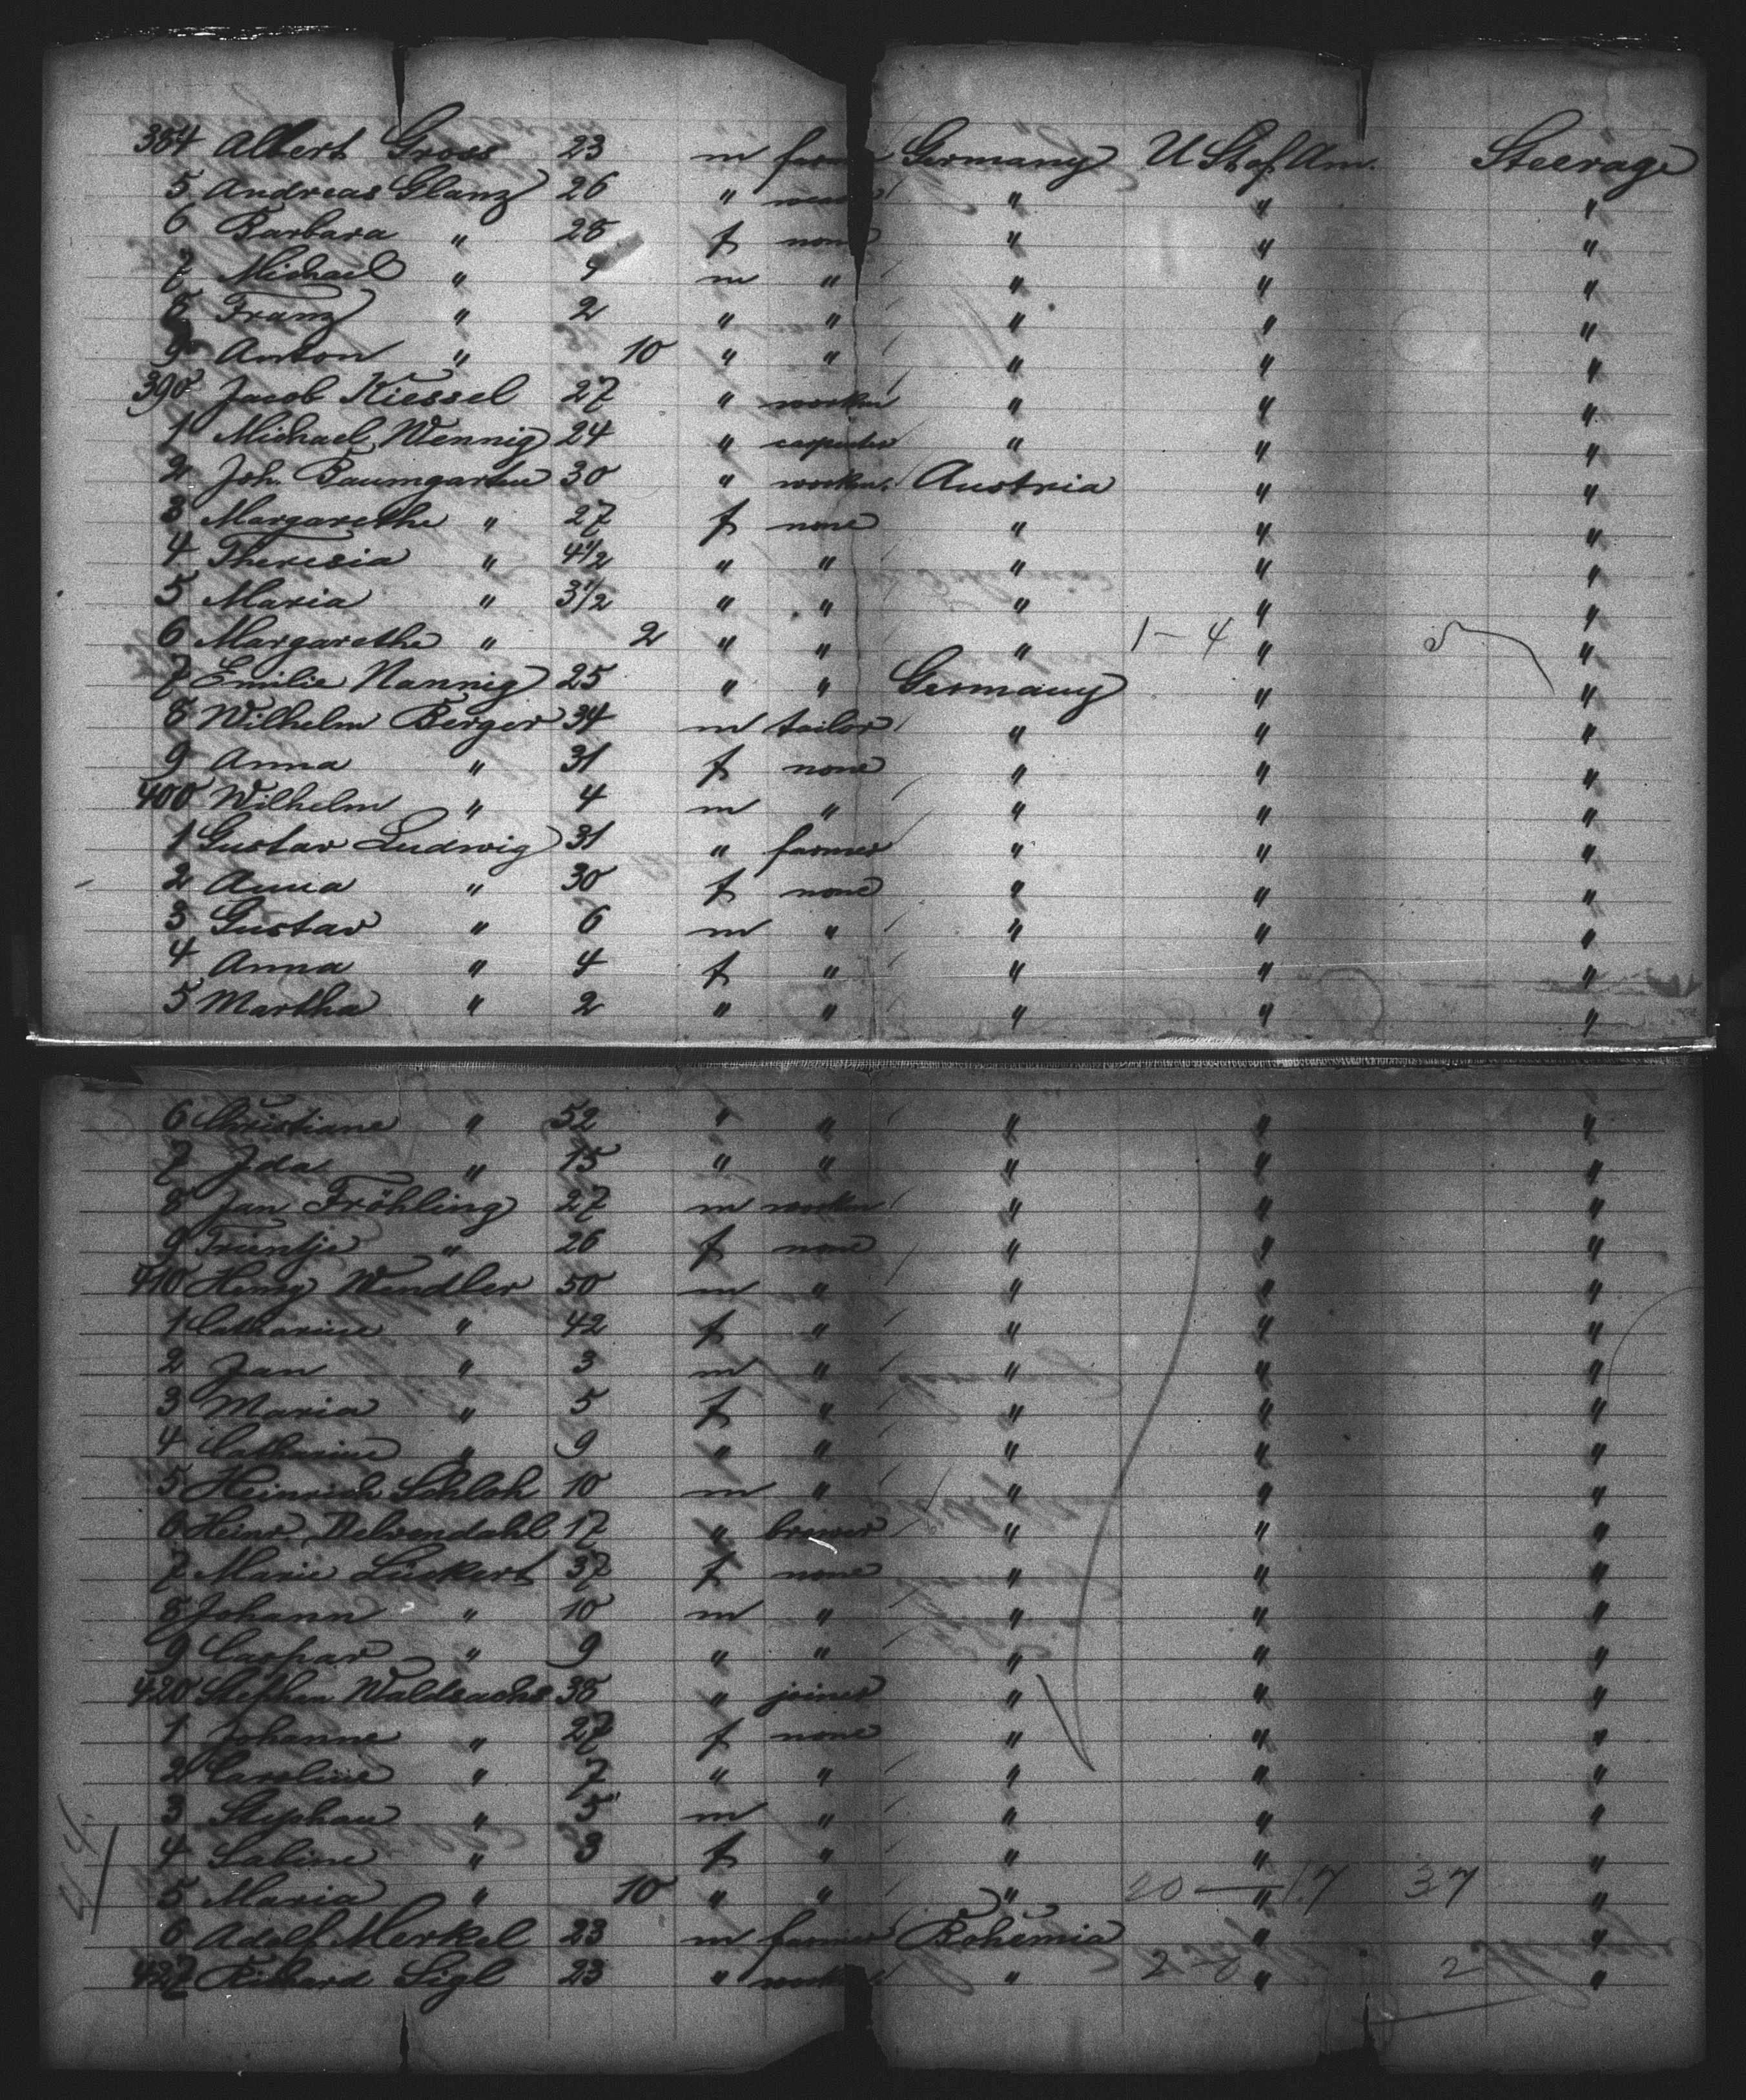 384 Albert Gross 23 m farmer Germany U St of Am. Steerage
5 Andreas Glanz 26 " " " "
6 Barbara " 28 f none " " "
7 Michael " 4 m " " " "
8 Franz " 2 " " " " "
9 Anton " 10 " " " " "
390 Jacob Kiessel 27 " worker " " "
1 Michael Wennig 24 " carpenter " " "
2 Joh. Baumgarten 30 " worker Austria " "
3 Margarethe " 27 f none " " "
4 Theresia " 4 1/2 " " " " "
5 Maria " 3 1/2 " " " " "
6 Margarethe " 2 " " " 1 - 4 " 5 "
7 Emilie Nannig 25 " " Germany " "
8 Wilhelm Berger 34 m tailor " " "
9 Anna " 31 f none " " "
400 Wilhelm " 4 m " " " "
1 Gustav Ludwig 31 " farmer " " "
2 Anna " 30 f none " " "
3 Gustav " 6 m " " " "
4 Anna " 4 f " " " "
5 Martha " 2 " " " " "
6 Christiane " 52 " " " " "
7 Ida " 15 " " " " "
8 Jan Fröhling 27 m worker " " "
9 Trientje " 26 f none " " "
410 Henry Wendler 50 m " " " "
1 Catharine " 42 f " " " "
2 Jan " 3 m " " " "
3 Maria " 5 f " " " "
4 Catharine " 9 " " " " "
5 Heinrich Schloh 10 m " " " "
6 Heinr. Behrendahl 17 " brewer " " "
7 Marie Lückert 37 f none " " "
8 Johann " 10 m " " " "
9 Caspar " 9 " " " " "
420 Stephan Waldsachs 38 " joiner " " "
1 Johanne " 27 f none " " "
2 Caroline " 7 " " " " "
3 Stephan " 5 m " " " "
4 Sabine " 3 f " " " "
5 Maria " 10 " " " 20 — 17 " 37 "
6 Adolf Merkel 23 m farmer Bohemia " "
427 Richard Sigl 23 " worker " 2 - 0 " 2 "